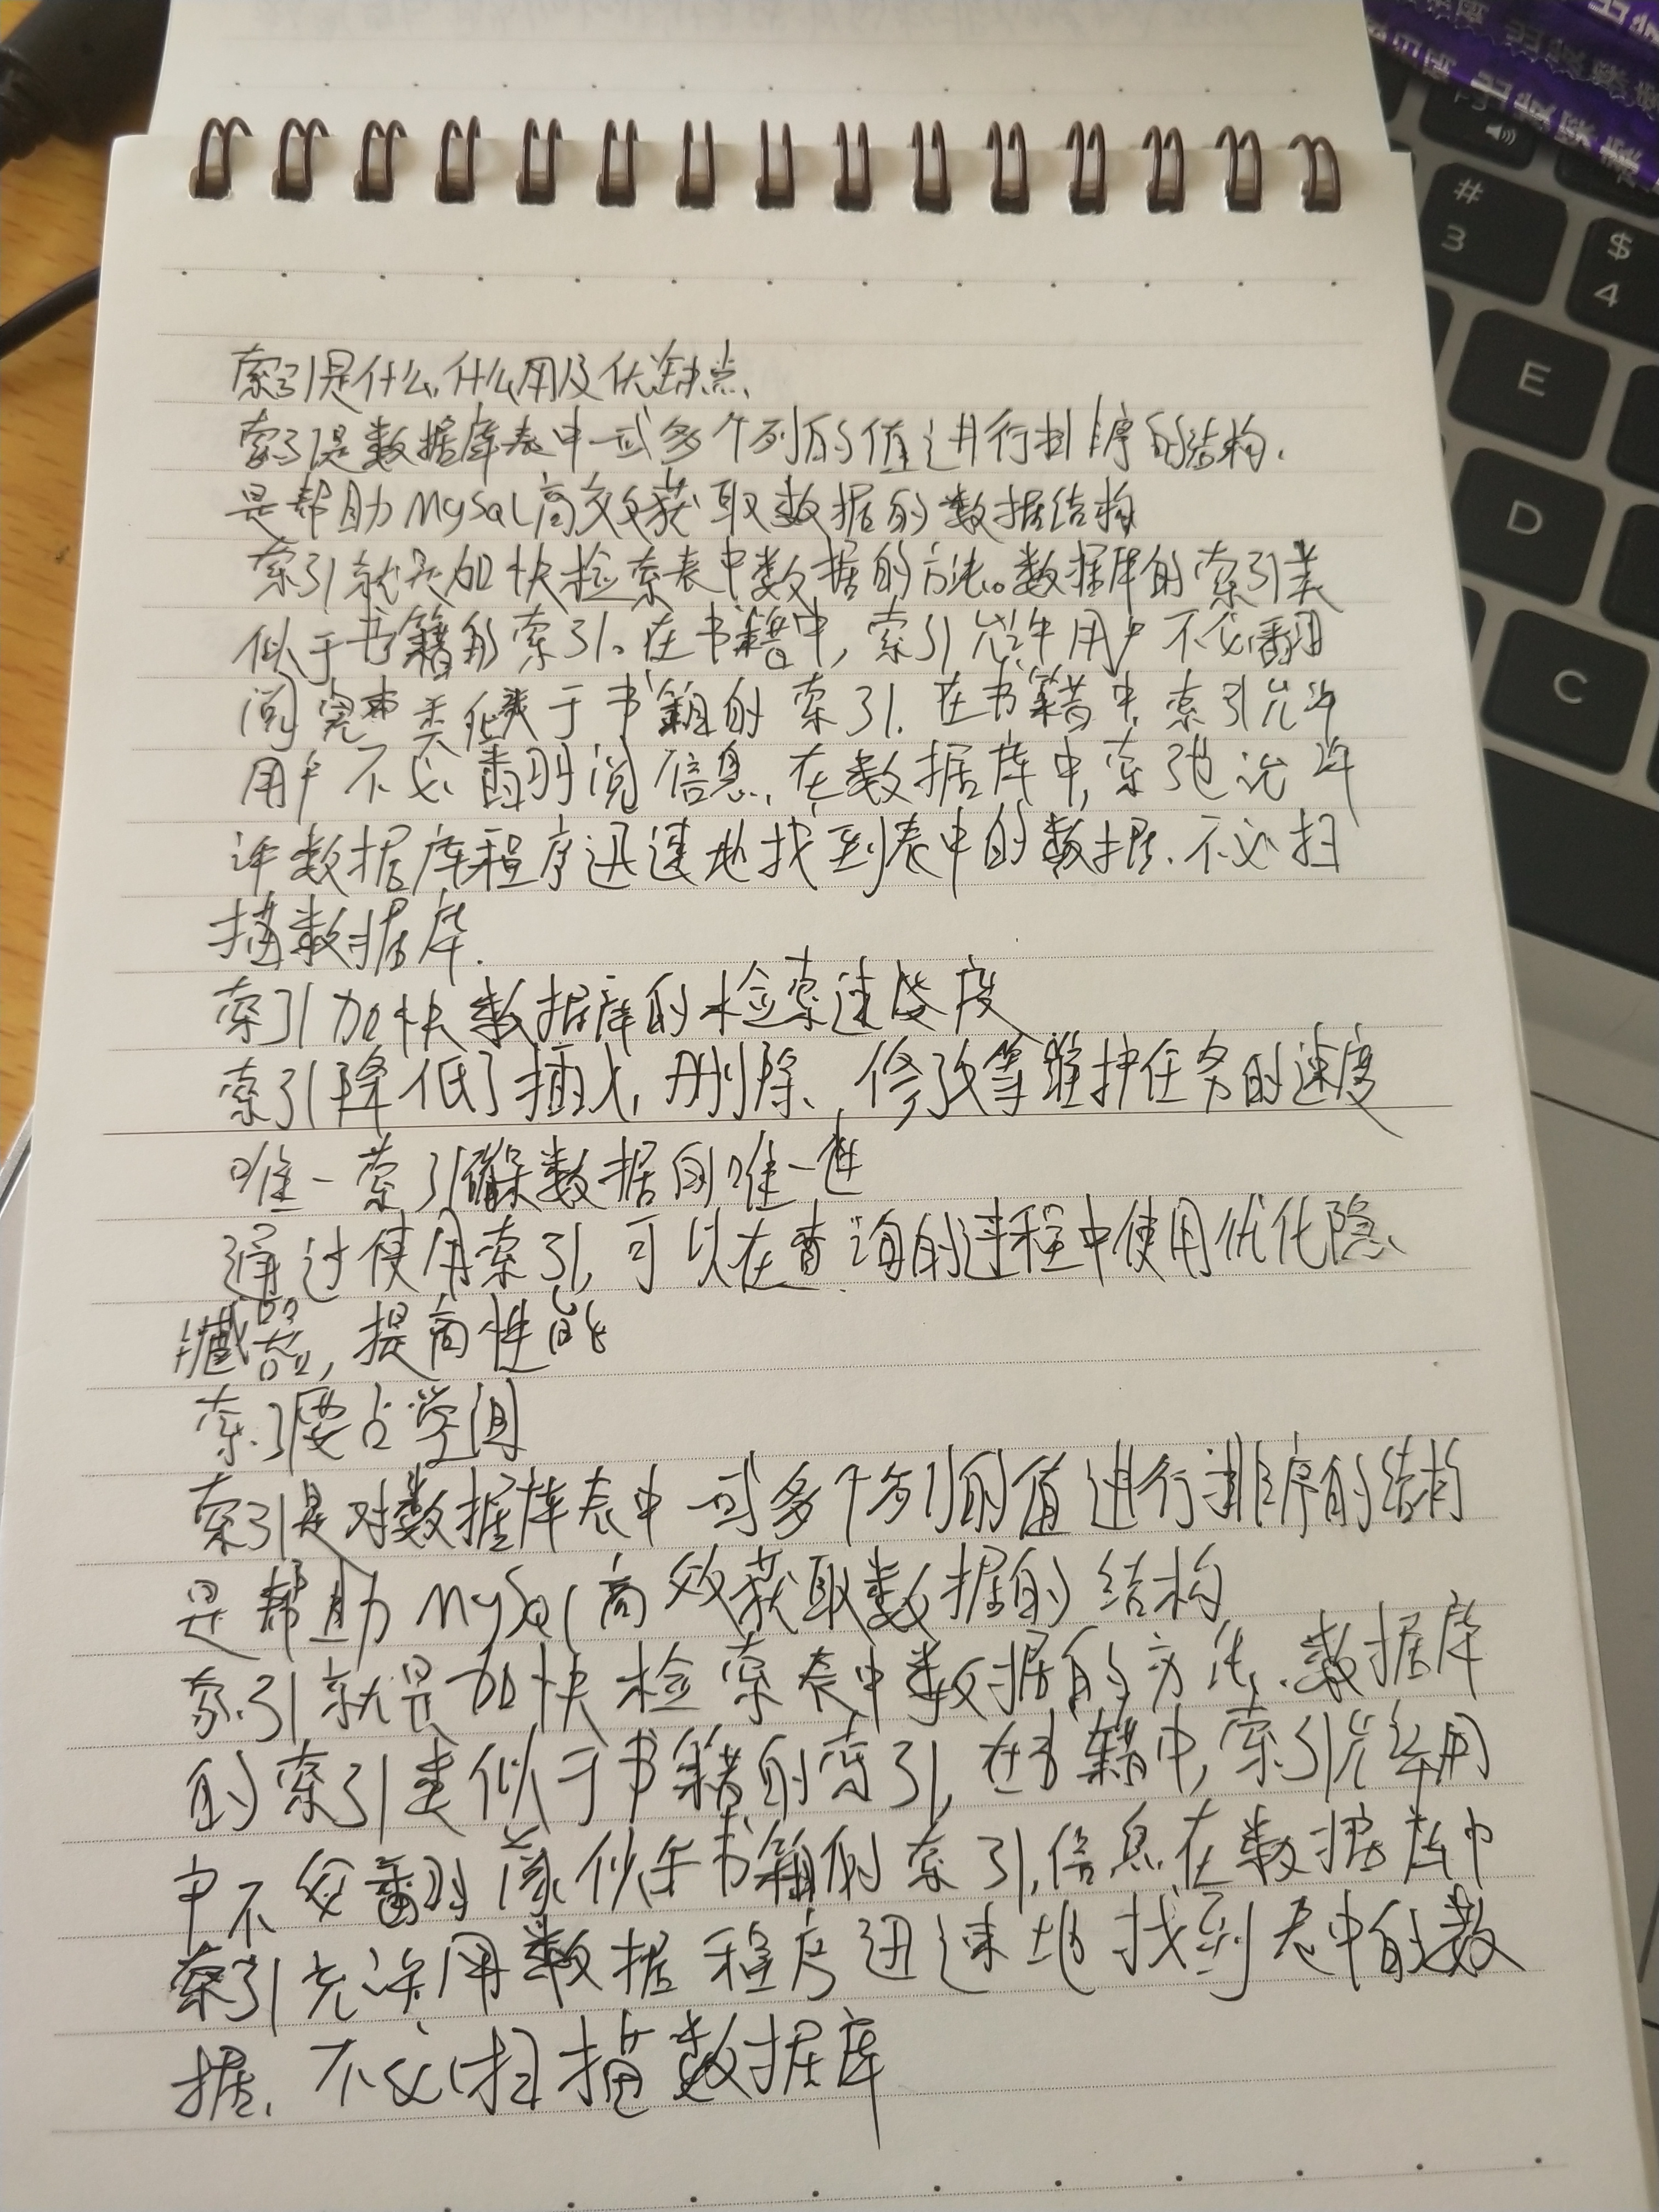 索引是什么,什么用及优缺点、
索引是数据库表中一或多个列的值进行排序的结构.
是帮助MySQL高效获取数据的数据结构
索引就是加快检索表中数据的方法。数据库的索引类
似于书籍的索引。在书籍中,索引允许用户不必翻
阅完 类似于书籍的索引.在书籍中,索引允许
用户不必翻阅信息.在数据库中,索引也允许
许数据库程序迅速地找到表中的数据.不必扫
描数据库.
索引加快数据库的检索速度
索引降低了插入,删除、修改等维护任务的速度
唯一索引确保数据的唯一性
通过使用索引,可以在查询的过程中使用优化隐、
藏器,提高性能
索引要占空间
索引是对数据库表中一或多个列的值进行排序的结构
是帮助MySQL高效获取数据的结构
索引就是加快检索表中数据的方法.数据库
的索引类似于书籍的索引,在书籍中,索引允许用
不 翻 似于书籍的索引,信息在数据库中
索引允许用数据程序迅速地找到表中的数
据.不必扫描数据库
# 3
$ 4
E
D
C